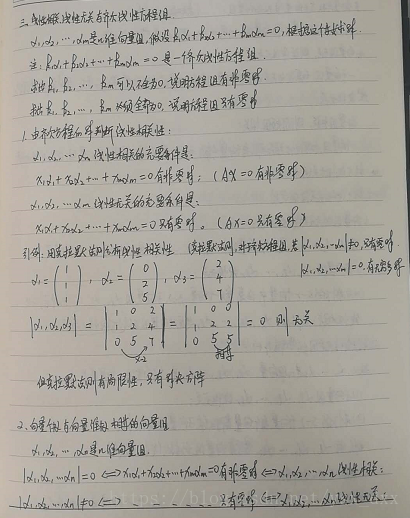 三、线性相关,线性无关与齐次线性方程组
α₁, α₂, …, αm是n维向量组, 假设 k₁α₁+k₂α₂+…+kmαm=0, 根据这个式子
注: k₁α₁+k₂α₂+…+kmαm=0 是一个齐次线性方程组
若 k₁, k₂, …, km 可以不全为0, 说明方程组有非零解
若 k₁, k₂, …, km 必须全为0, 说明方程组只有零解
1. 由齐次方程的解判断线性相关性:
α₁, α₂, … αm 线性相关的充要条件是:
x₁α₁+x₂α₂+…+xmαm=0 有非零解; (AX=0有非零解)
α₁, α₂, … αm 线性无关的充要条件是:
x₁α₁+x₂α₂+…+xmαm=0 只有零解。(AX=0只有零解)
引例: 用克拉默法则分析线性相关性 (克拉默法则, 对于齐次方程组, 若 |α₁,α₂,…αm|≠0, 只有零解
|α₁,α₂,…αm|=0, 有非零解
α₁ = (1 1 1), α₂ = (0 2 5), α₃ = (2 4 7)
|α₁,α₂,α₃| = |1 0 2 1 2 4 0 5 7| = |1 0 0 1 2 2 0 5 5| = 0 则 无关
×-2 相等
但克拉默法则有局限性, 只有方阵
2. 向量个数与向量维数相等的向量组
α₁, α₂, … αn 是n维向量组
|α₁, α₂, …αn|=0 ⟺ x₁α₁+x₂α₂+…+xmαm=0有非零解 ⟺ α₁, α₂, … αn 线性相关;
|α₁, α₂, …αn|≠0 ⟺ … 只有零解 ⟺ α₁, α₂, … αn 线性无关